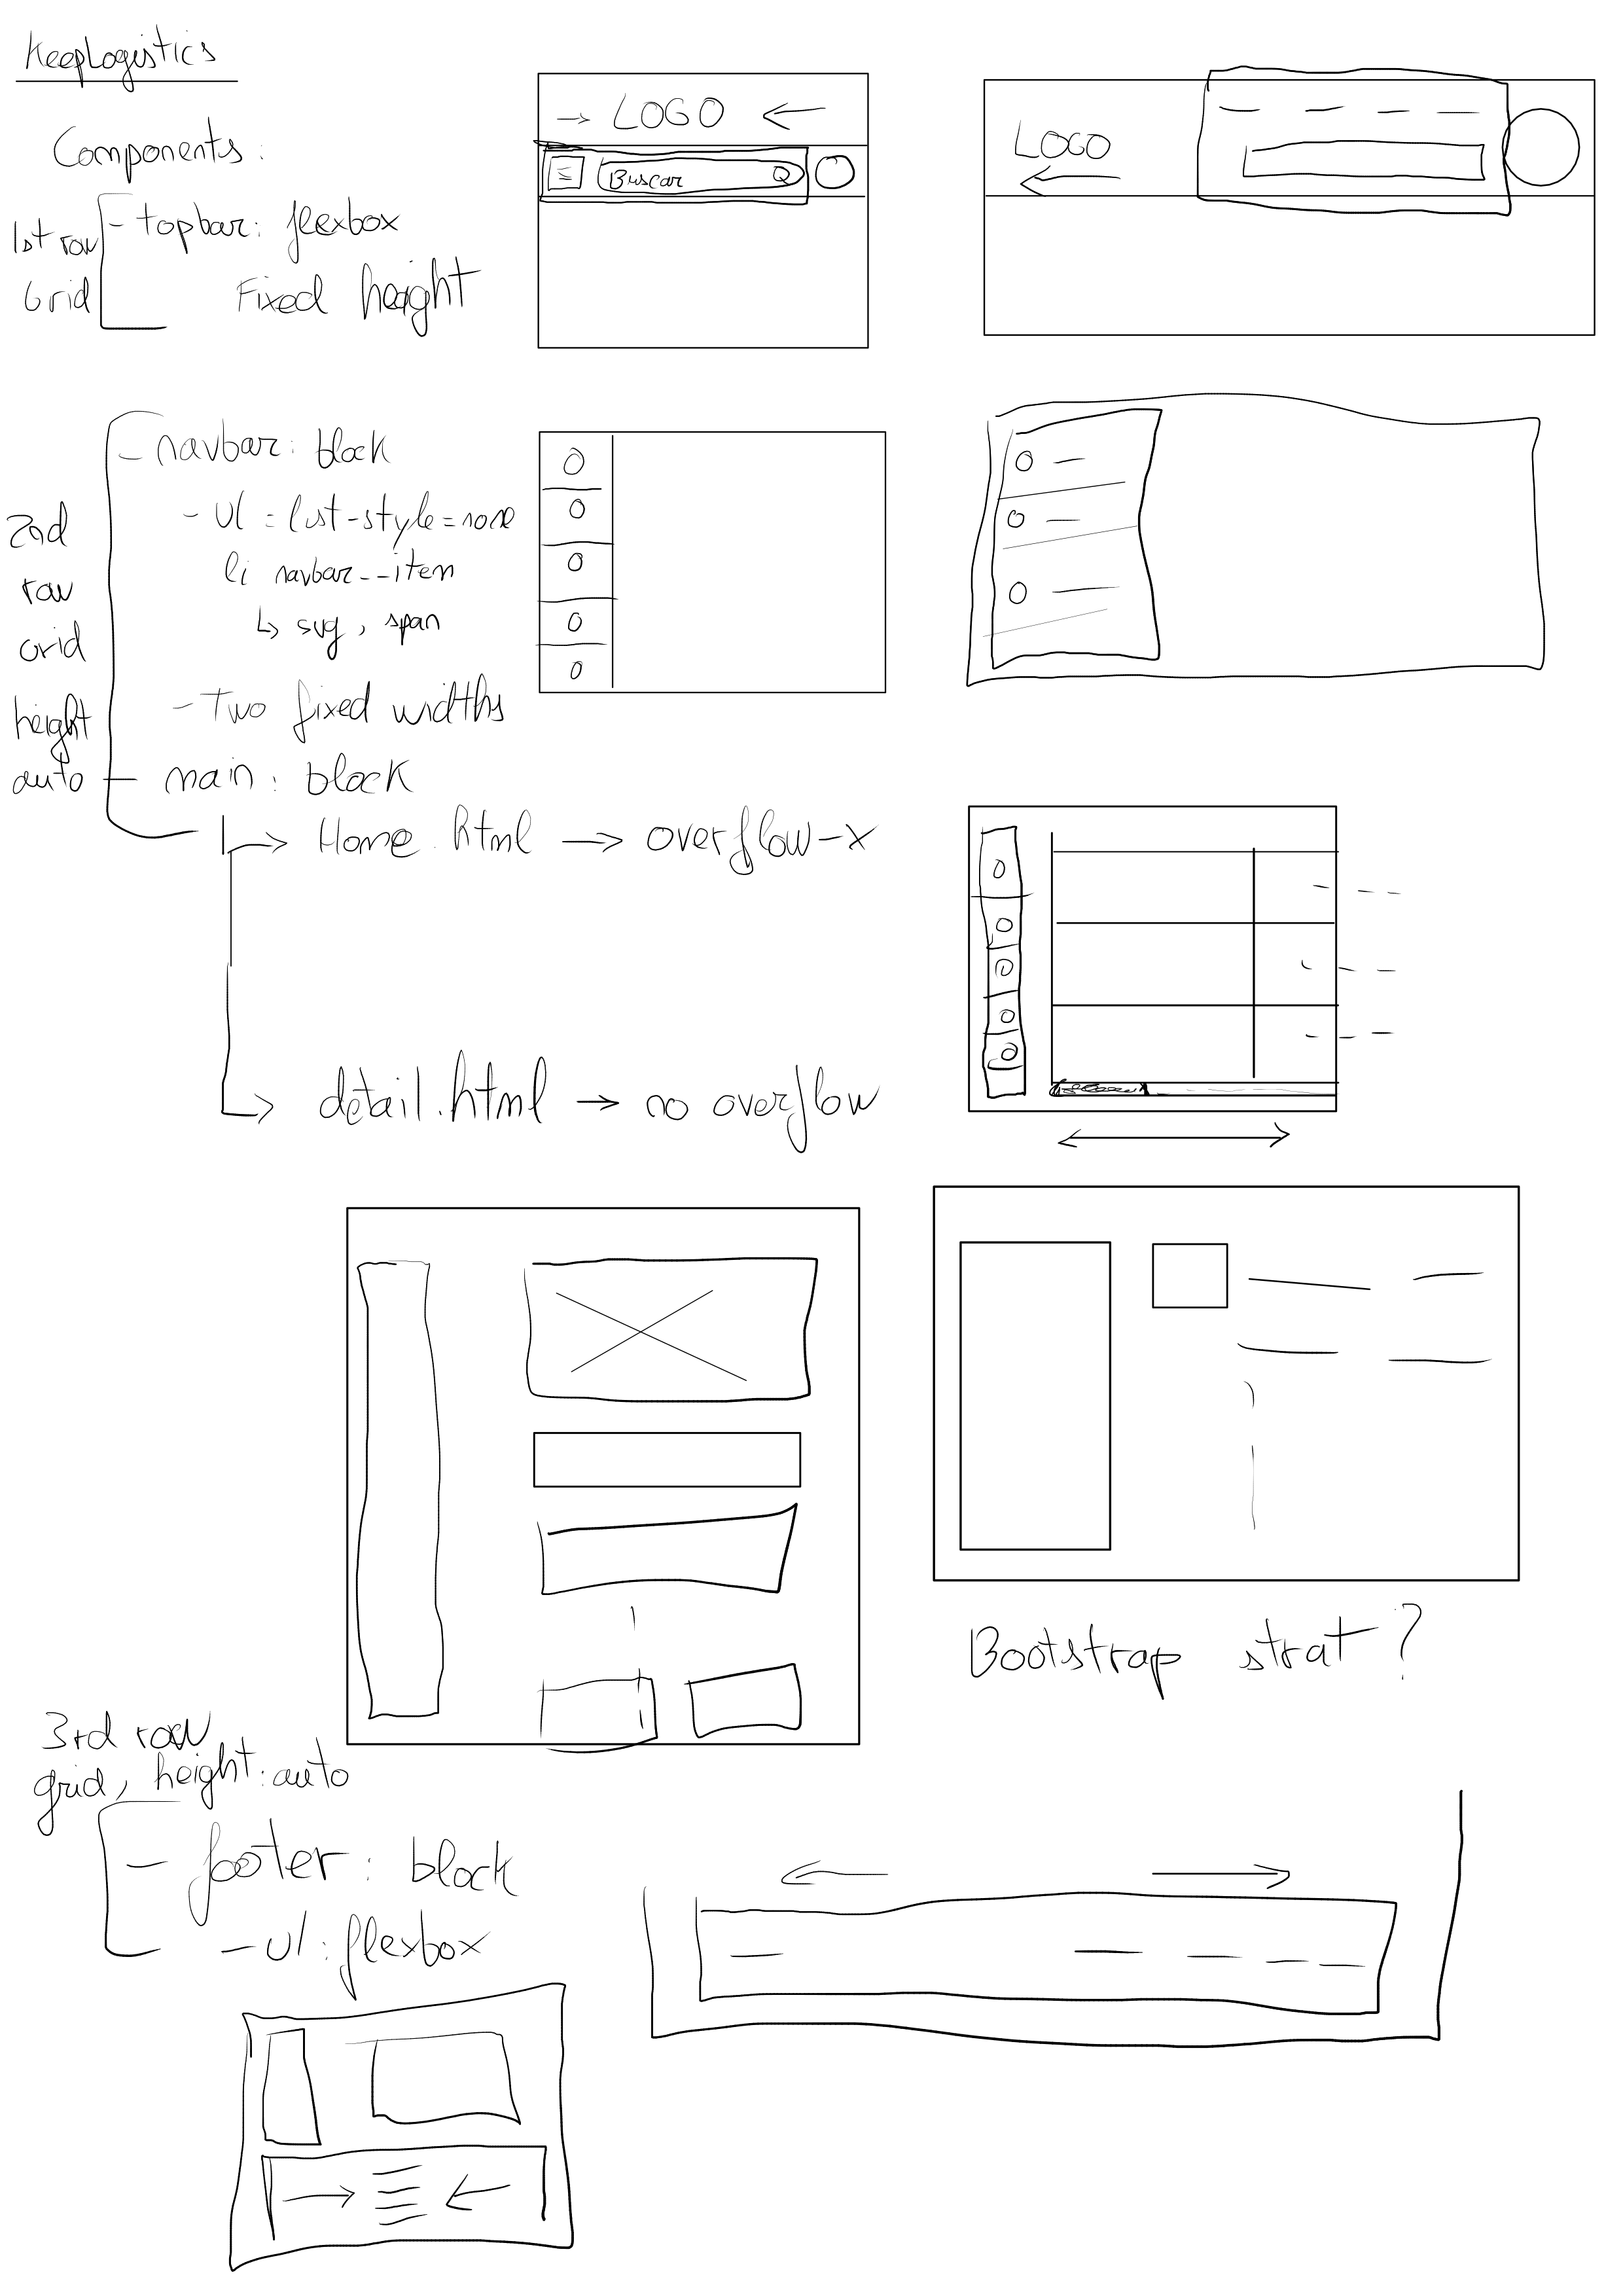 KeepLogistics
Components:
1st row
Grid
- topbar: flexbox
Fixed height
→ LOGO ←
Buscar
LOGO
←
2nd
row
grid
height
auto
- navbar: block
- ul = list-style=none
li navbar--item
↳ svg, span
- Two fixed widths
- main: block
→ Home.html → overflow-x
→ detail.html → no overflow
Bootstrap strat?
3rd row
grid, height:auto
- footer: block
- ul: flexbox